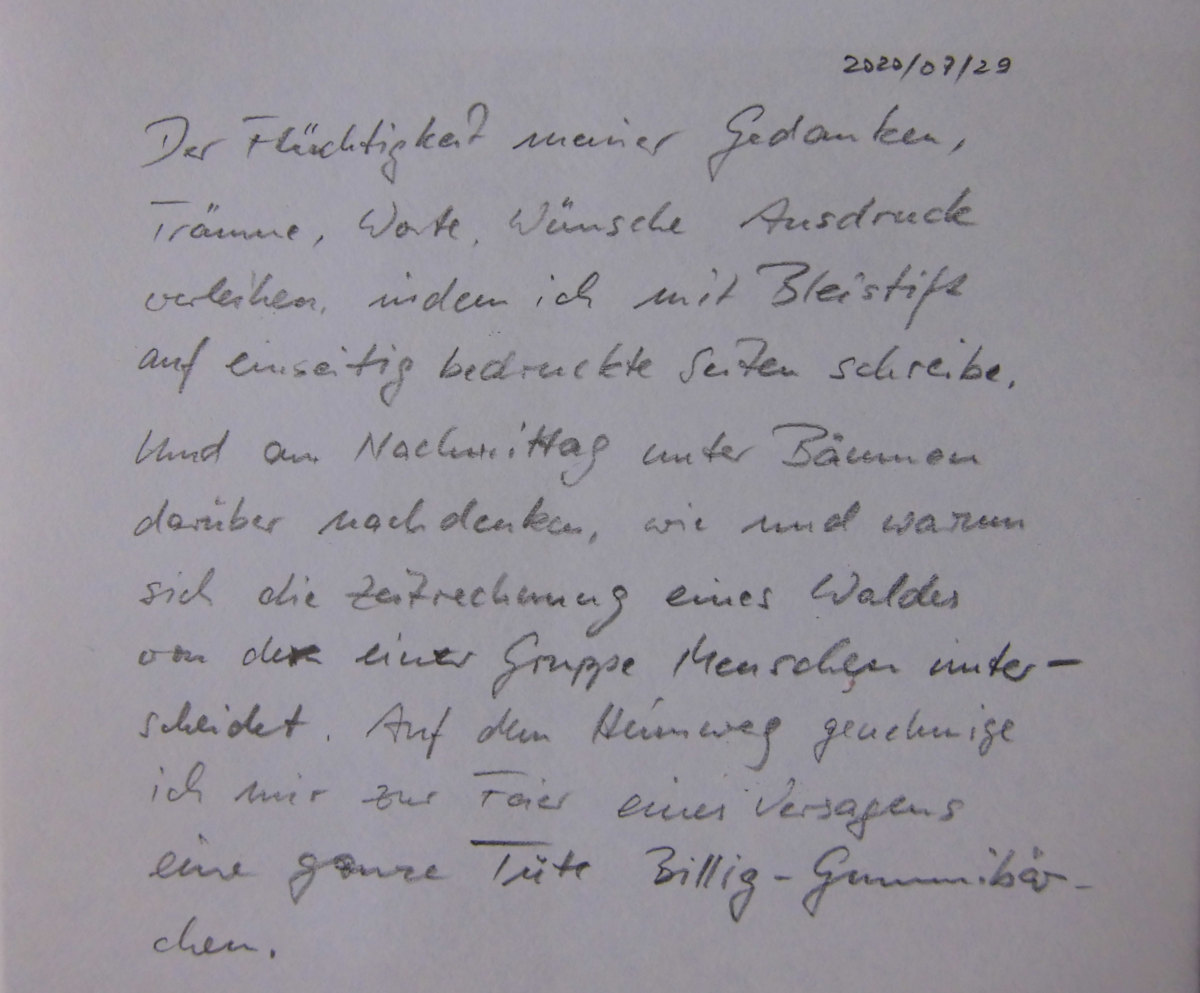 2020/07/29
Der Flüchtigkeit meiner Gedanken,
Träume, Worte, Wünsche Ausdruck
verleihen, indem ich mit Bleistift
auf einseitig bedruckte Seiten schreibe.
Und am Nachmittag unter Bäumen
darüber nachdenken, wie und warum
sich die Zeitrechnung eines Waldes
von der einer Gruppe Menschen unter-
scheidet. Auf dem Heimweg genehmige
ich mir zur Feier eines Versagens
eine ganze Tüte Billig-Gummibär-
chen.